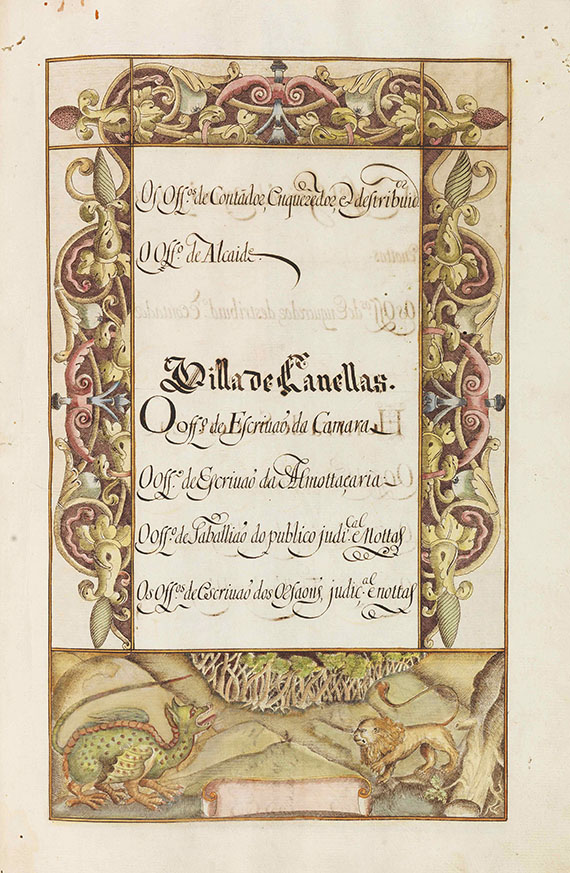 Os Off.os de Contador, Enqueredor, e destribuidor
O Off.o de Alcaide.
Villa de Canellas.
O off.o de Escriuaõ da Camara
O off.o de Escriuaõ da Almottaçaria
O off.o de Taballiaõ do publico judi.cal e Nottas
Os Off.os de Escriuaõ dos Orfaons, judiç.al e nottas